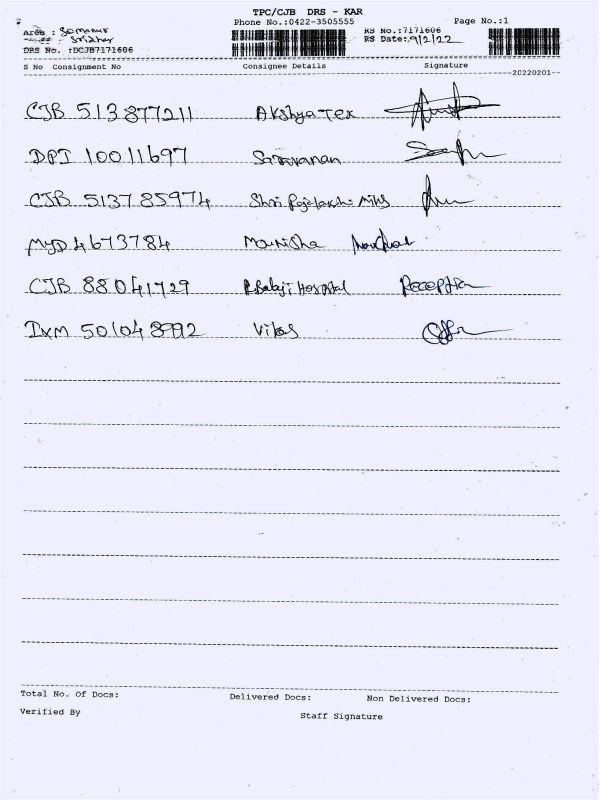 TPC/CJB DRS - KAR
Phone No.:0422-3505555 Page No.:1
Area : Somanur RS No.:7171606
Sridhar RS Date:9/2/22
DRS No. :DCJB7171606
S No Consignment No Consignee Details Signature
20220201
CJB 513877211 Akshya Tex
DPI 10011697 Saravanan
CJB 513785974 Shri Mills
MYD 4673784 Manisha
CJB 88041729 Balaji Hospital Reception
IXM 501048992 Vikas
Total No. Of Docs: Delivered Docs: Non Delivered Docs:
Verified By Staff Signature